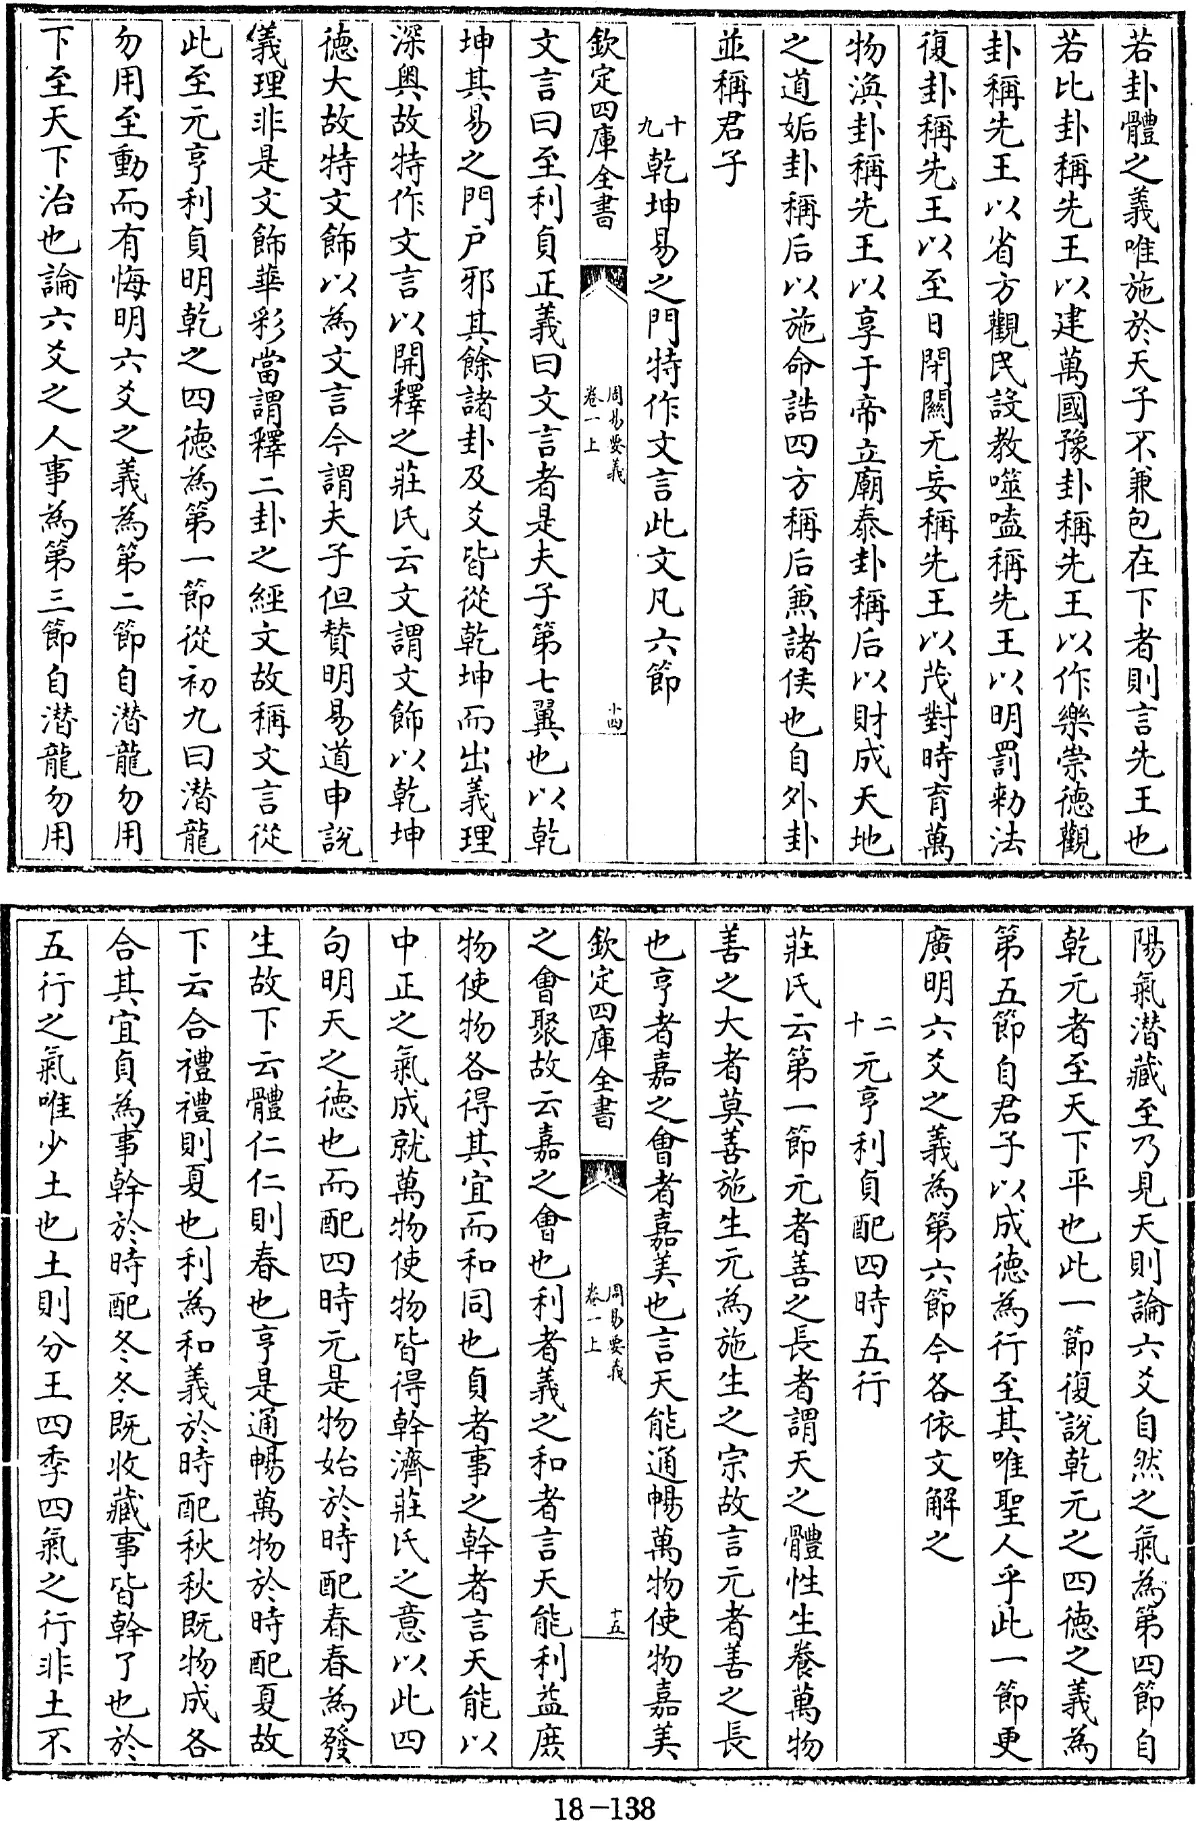 若卦體之義唯施於天子不兼包在下者則言先王也
若比卦稱先王以建萬國豫卦稱先王以作樂崇德觀
卦稱先王以省方觀民設教噬嗑稱先王以明罰勅法
復卦稱先王以至日閉關无妄稱先王以茂對時育萬
物渙卦稱先王以享于帝立廟泰卦稱后以財成天地
之道姤卦稱后以施命誥四方稱后兼諸侯也自外卦
並稱君子
十九乾坤易之門特作文言此文凡六節
欽定四庫全書
周易要義
卷一上
十四
文言曰至利貞正義曰文言者是夫子第七翼也以乾
坤其易之門户邪其餘諸卦及爻皆從乾坤而出義理
深奧故特作文言以開釋之莊氏云文謂文飾以乾坤
德大故特文飾以為文言今謂夫子但賛明易道申說
義理非是文飾華彩當謂釋二卦之經文故稱文言從
此至元亨利貞明乾之四德為第一節從初九曰潛龍
勿用至動而有悔明六爻之義為第二節自潛龍勿用
下至天下治也論六爻之人事為第三節自潛龍勿用
陽氣潛藏至乃見天則論六爻自然之氣為第四節自
乾元者至天下平也此一節復說乾元之四德之義為
第五節自君子以成德為行至其唯聖人乎此一節更
廣明六爻之義為第六節今各依文解之
二十元亨利貞配四時五行
莊氏云第一節元者善之長者謂天之體性生養萬物
善之大者莫善施生元為施生之宗故言元者善之長
也亨者嘉之會者嘉美也言天能通暢萬物使物嘉美
欽定四庫全書
周易要義
卷一上
十五
之會聚故云嘉之會也利者義之和者言天能利益庶
物使物各得其宜而和同也貞者事之幹者言天能以
中正之氣成就萬物使物皆得幹濟莊氏之意以此四
句明天之德也而配四時元是物始於時配春春為發
生故下云體仁仁則春也亨是通暢萬物於時配夏故
下云合禮禮則夏也利為和義於時配秋秋既物成各
合其宜貞為事幹於時配冬冬既收藏事皆幹了也於
五行之氣唯少土也土則分王四季四氣之行非土不
18-138